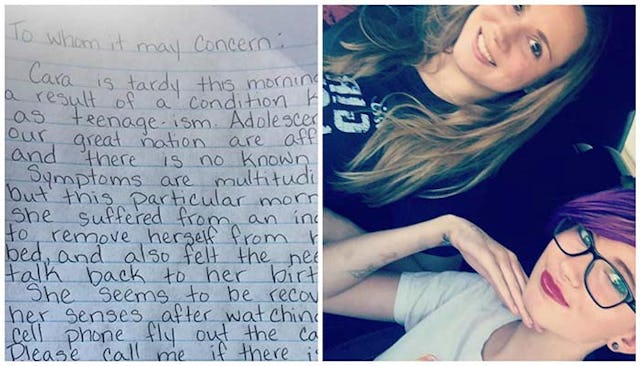 To whom it may concern:
Cara is tardy this morning
a result of a condition k
as teenage-ism. Adolescen
our great nation are aff
and there is no known
Symptoms are multitudi
but this particular morn
she suffered from an in
to remove herself from
bed, and also felt the nee
talk back to her birt
She seems to be recov
her senses after watching
cell phone fly out the ca
Please call me if there is